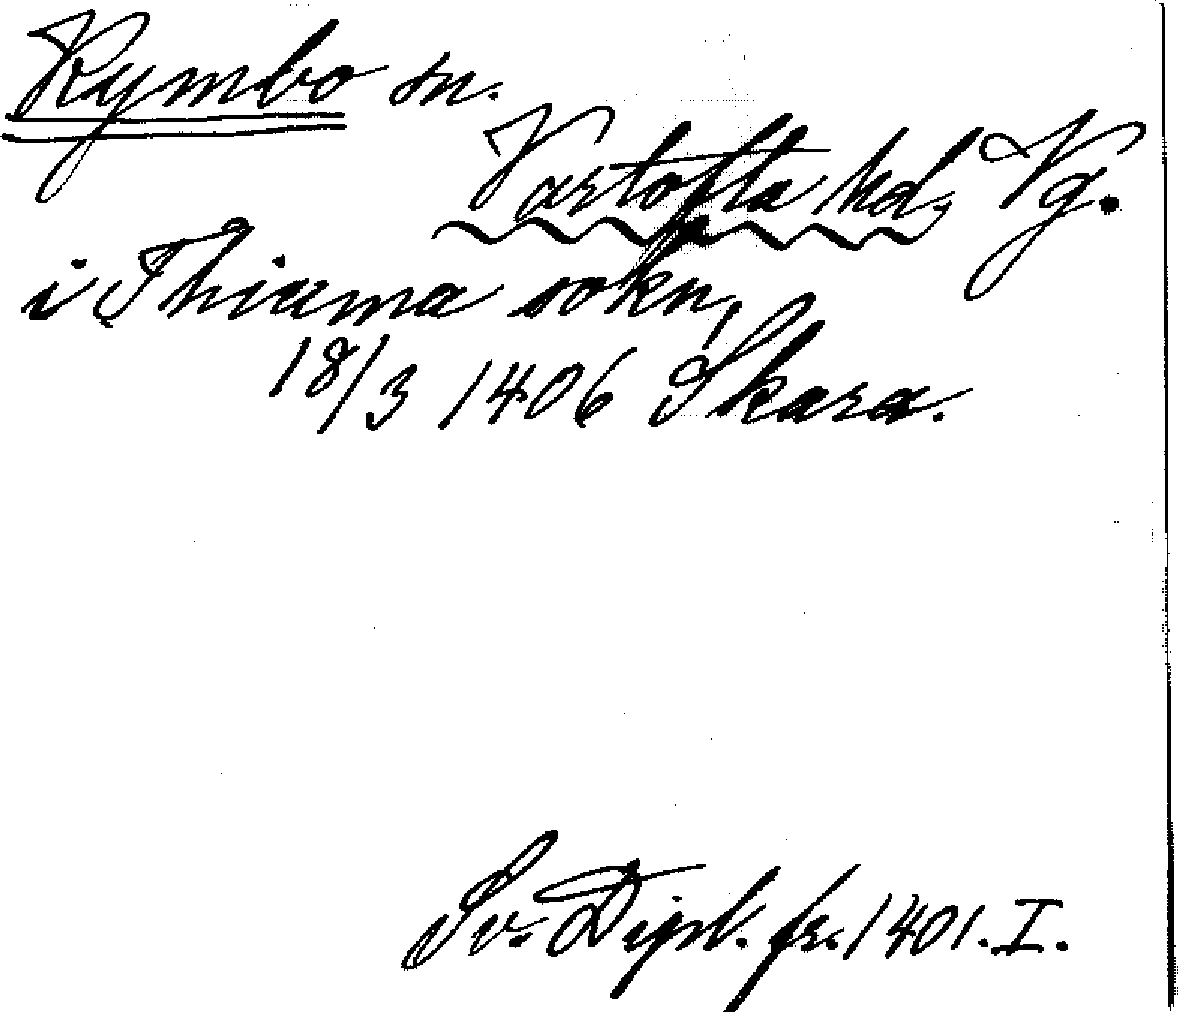 Kymbo sn.
Vartofta hd, Vg.
i Thiæma sokn,
18/3 1406 Skara.
Sv. Dipl. fr. 1401. I.